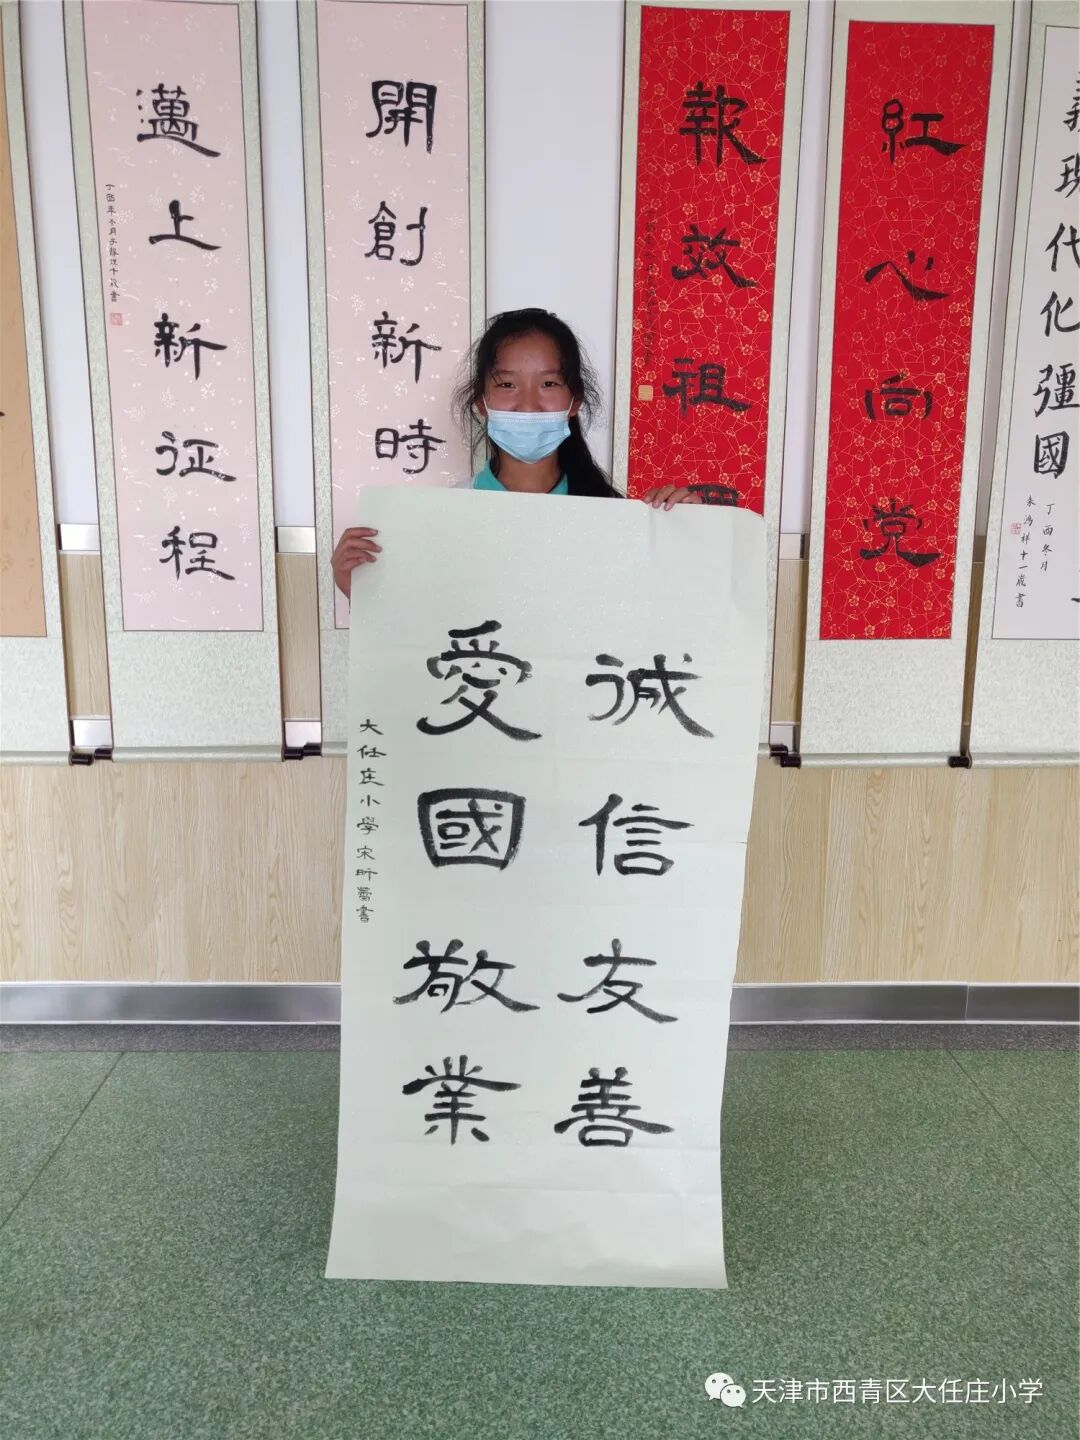 誠信友善
愛國敬業
大任庄小學宋昕蕾書
義現代化彊國
丁酉冬月
朱鴻祥十一歲書
紅心向党
報效祖國
開創新時
邁上新征程
天津市西青区大任庄小学